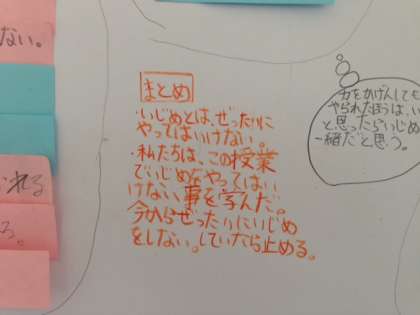 ない。
まとめ
・いじめとは、ぜったいに
やってはいけない。
・私たちは、この授業
でいじめをやってはい
けない事を学んだ。
今からぜったいにいじめ
をしない。していたら止める。
力をかげんしても
やられたほうは、い
と思ったらいじめ
一緒だと思う。
れる
る。